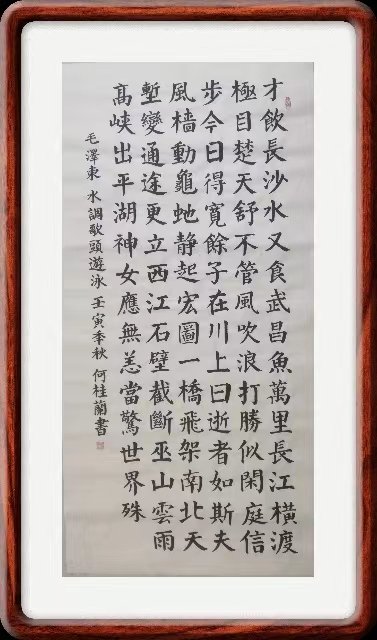 才飲長沙水又食武昌魚萬里長江橫渡
極目楚天舒不管風吹浪打勝似閑庭信
步今日得寬餘子在川上曰逝者如斯夫
風檣動龜虵静起宏圖一橋飛架南北天
塹變通途更立西江石壁截斷巫山雲雨
髙峡出平湖神女應無恙當驚世界殊
毛澤東 水調歌頭遊泳 壬寅秊秋 何桂蘭書